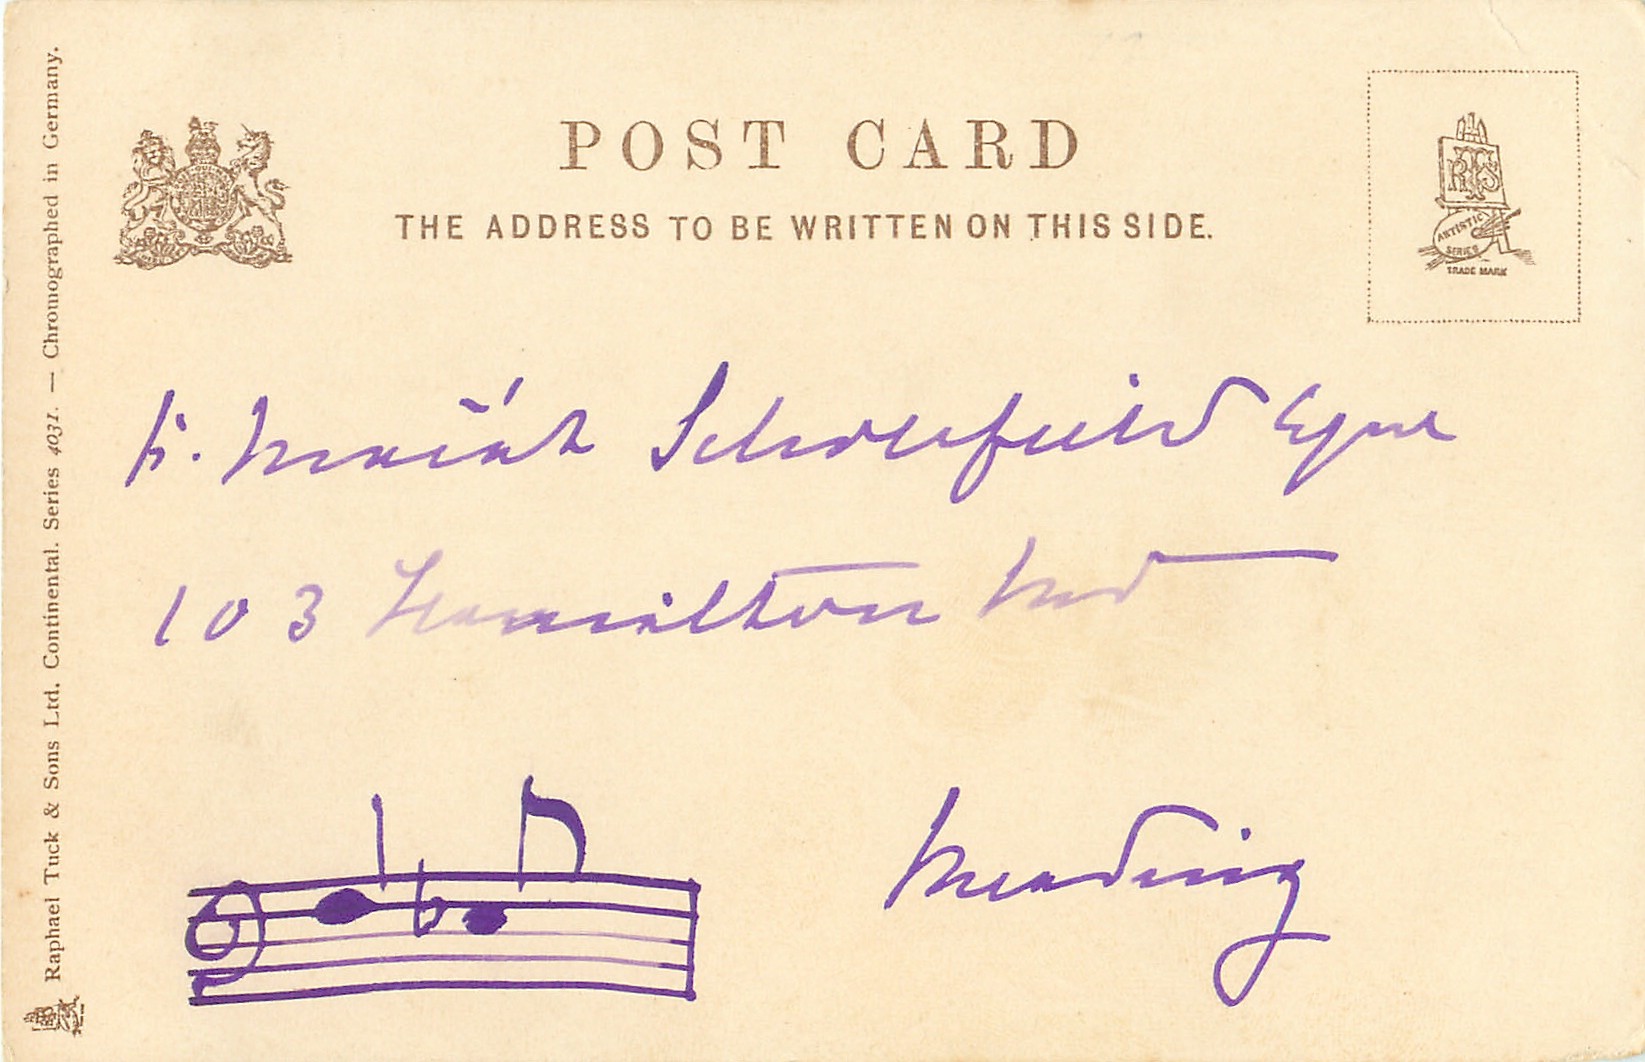 POST CARD
THE ADDRESS TO BE WRITTEN ON THIS SIDE.
RTS
ARTISTIC
SERIES
TRADE MARK
Scholefield Esqre
103 Hamilton Rd
Reading
Raphael Tuck & Sons Ltd. Continental. Series 4031. — Chromographed in Germany.